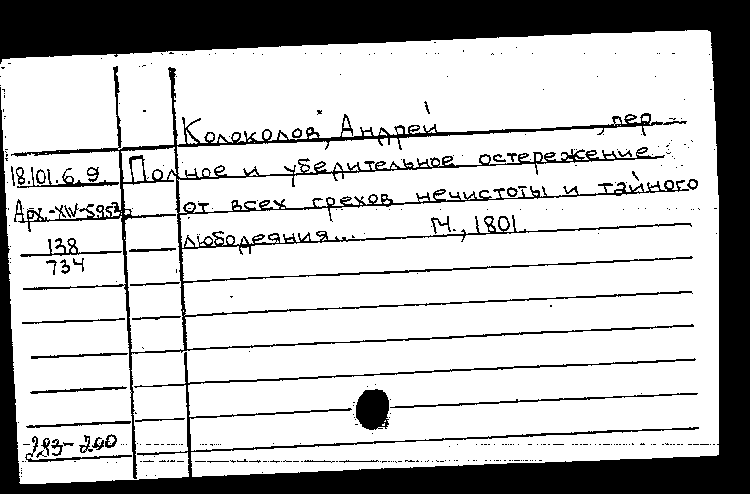 Колоколов, Андрей, пер
18.101.6.9. Полное и убедительное остережение
от всех грехов нечистоты и тайного
любодеяния... М., 1801.
138
734
293-200